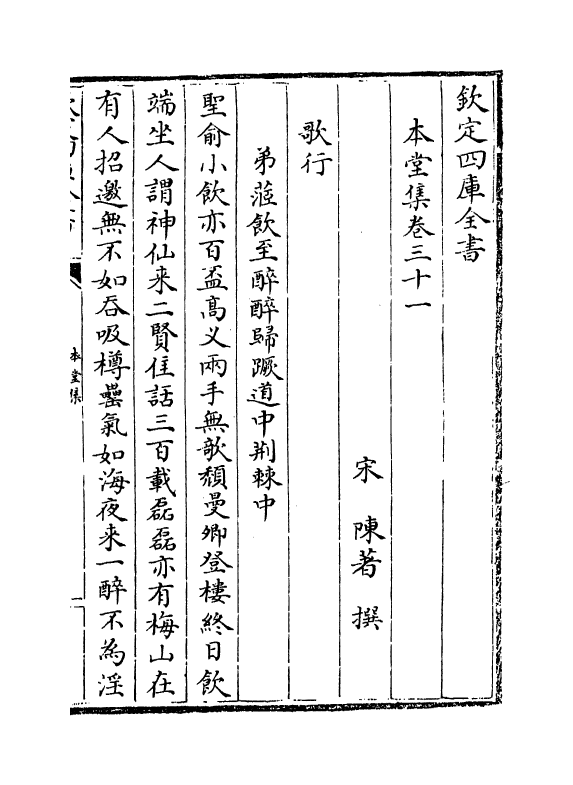 欽定四庫全書
本堂集卷三十一
宋 陳著 撰
歌行
弟蒞飲至醉醉歸蹶道中荆棘中
聖俞小飲亦百盃高义兩手無欹頽曼卿登樓終日飲
端坐人謂神仙来二賢佳話三百載磊磊亦有梅山在
有人招邀無不如吞吸樽罍氣如海夜来一醉不為淫
本堂集